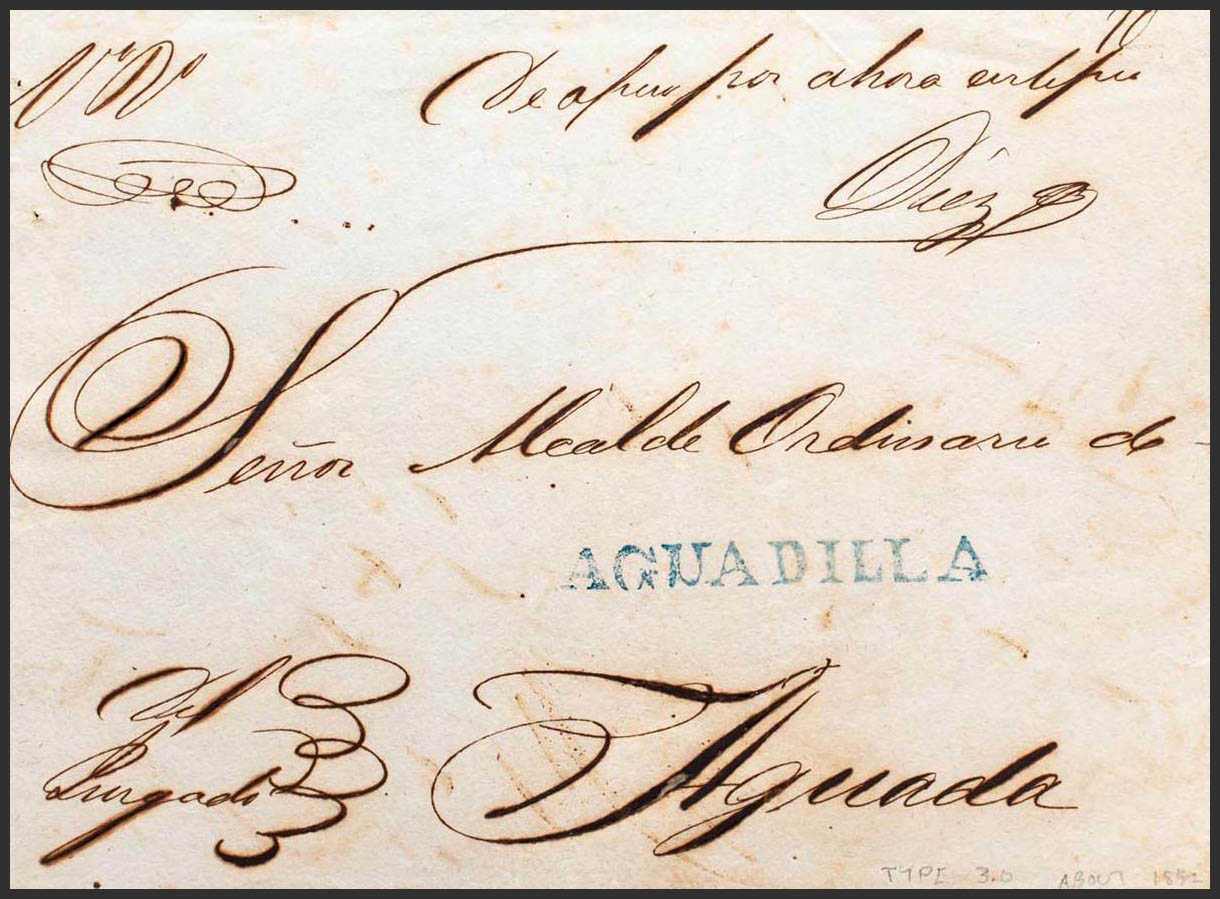 VºBº
De oficio por ahora certifico
Diez
Señor Alcalde Ordinario de
AGUADILLA
Del
Juzgado
Aguada
TYPE 3.0 ABOUT 1852